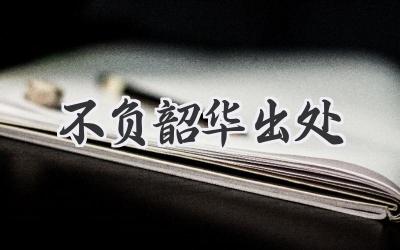 不负韶华出处